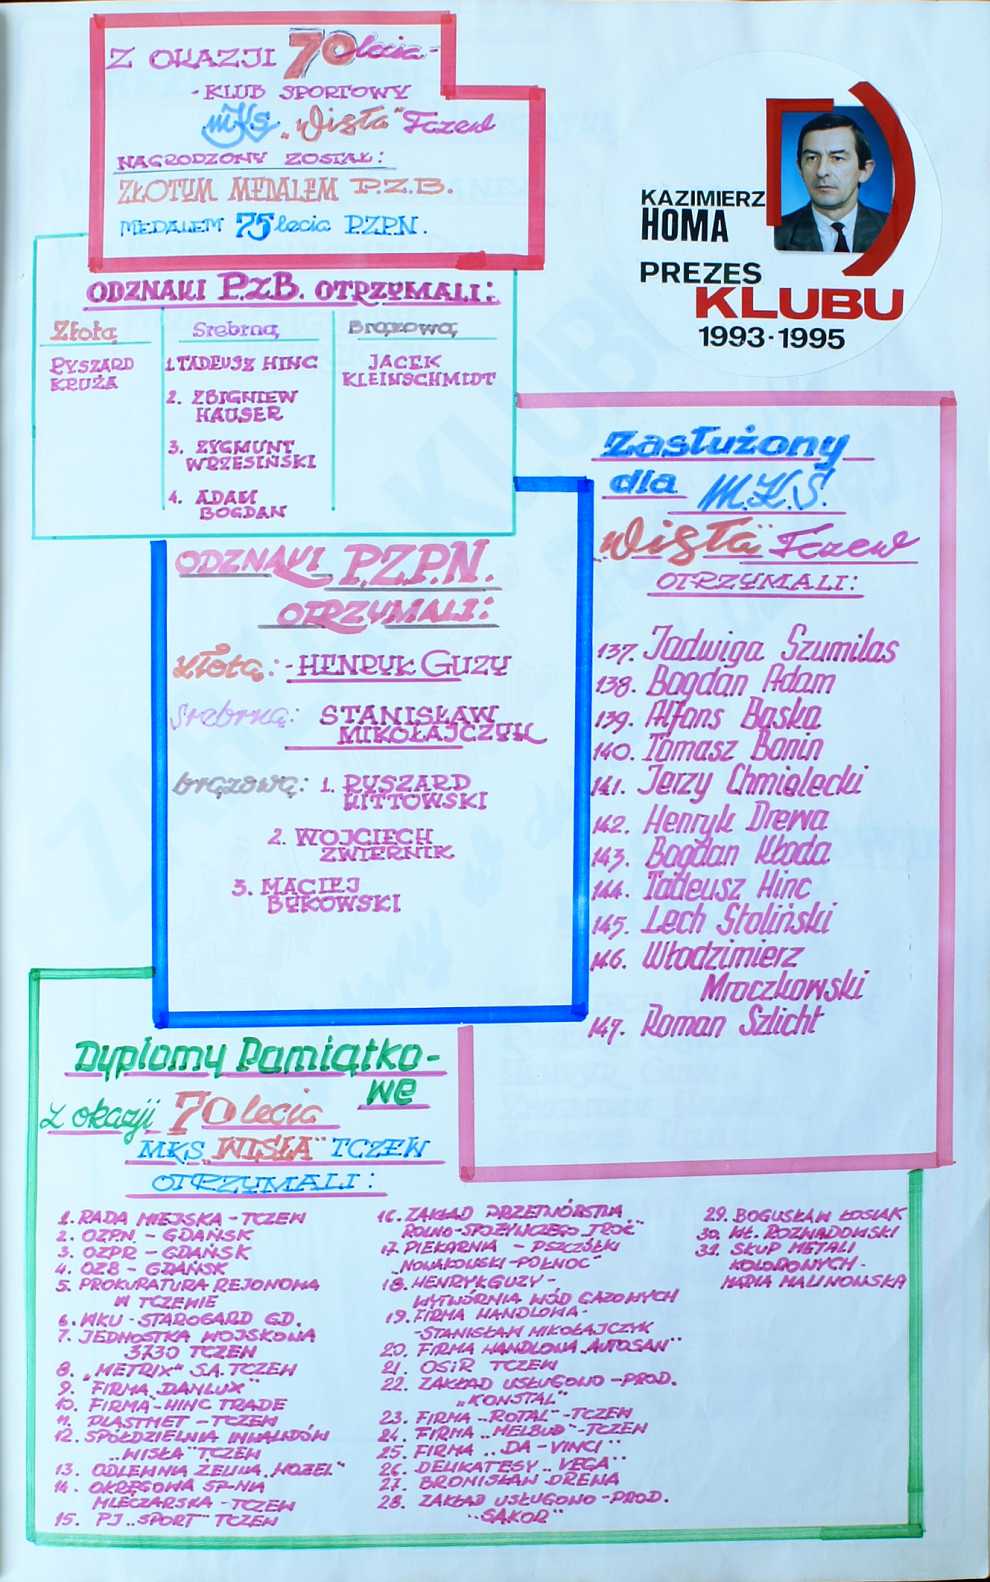 Z OKAZJI 70 lecia -
- KLUB SPORTOWY
MKS „Wisła" Tczew
NAGRODZONY ZOSTAŁ:
ZŁOTYM MEDALEM P.Z.B.
MEDALEM 75 lecia PZPN.
KAZIMIERZ
HOMA
PREZES
KLUBU
1993-1995
ODZNAKI P.Z.B. OTRZYMALI:
Złotą
RYSZARD
KRUŻA
Srebrną
1. TADEUSZ HINC
2. ZBIGNIEW
HAUSER
3. ZYGMUNT
WRZESIŃSKI
4. ADAM
BOGDAN
Brązową
JACEK
KLEINSCHMIDT
ODZNAKI PZPN.
OTRZYMALI:
złotą: - HENRYK GUZY
srebrną: STANISŁAW
MIKOŁAJCZYK
brązową: 1. RYSZARD
WITTOWSKI
2. WOJCIECH
ZWIERNIK
3. MACIEJ
BUKOWSKI
Zasłużony
dla M.K.S.
„Wisła" Tczew
OTRZYMALI:
137. Jadwiga Szumilas
138. Bogdan Adam
139. Alfons Baska
140. Tomasz Bonin
141. Jerzy Chmielecki
142. Henryk Drewa
143. Bogdan Kłoda
144. Tadeusz Hinc
145. Lech Stoliński
146. Włodzimierz
Mroczkowski
147. Roman Szlicht
Dyplomy Pamiątko-
we
z okazji 70 lecia
MKS „WISŁA" TCZEW
OTRZYMALI:
1. RADA MIEJSKA - TCZEW
2. OZPN - GDAŃSK
3. OZPR - GDAŃSK
4. OZB - GDAŃSK
5. PROKURATURA REJONOWA
W TCZEWIE
6. WKU - STAROGARD GD.
7. JEDNOSTKA WOJSKOWA
3730 TCZEW
8. „METRIX" S.A. TCZEW
9. FIRMA „DANLUX"
10. FIRMA - HINC TRADE
11. PLASTMET - TCZEW
12. SPÓŁDZIELNIA INWALIDÓW
„WISŁA" TCZEW
13. ODLEWNIA ŻELIWA „HOZEL"
14. OKRĘGOWA SP-NIA
MLECZARSKA - TCZEW
15. PJ „SPORT" TCZEW
16. ZAKŁAD PRZETWÓRSTWA
ROLNO-SPOŻYWCZEGO „TROĆ"
17. PIEKARNIA - PSZCZÓŁKI
„NOWAKOWSKI-PÓŁNOC"
18. HENRYK GUZY -
WYTWÓRNIA WÓD GAZOWYCH
19. FIRMA HANDLOWA -
- STANISŁAW MIKOŁAJCZYK
20. FIRMA HANDLOWA „AUTOSAN"
21. OSiR TCZEW
22. ZAKŁAD USŁUGOWO - PROD.
„KONSTAL"
23. FIRMA „ROTAL" - TCZEW
24. FIRMA „MELBUD" - TCZEW
25. FIRMA „DA - VINCI"
26. DELIKATESY „VEGA"
27. BRONISŁAW DREWA
28. ZAKŁAD USŁUGOWO - PROD.
„SĄKOR"
29. BOGUSŁAW ŁOSIAK
30. WŁ. ROZWADOWSKI
31. SKUP METALI
KOLOROWYCH -
MARIA MALINOWSKA